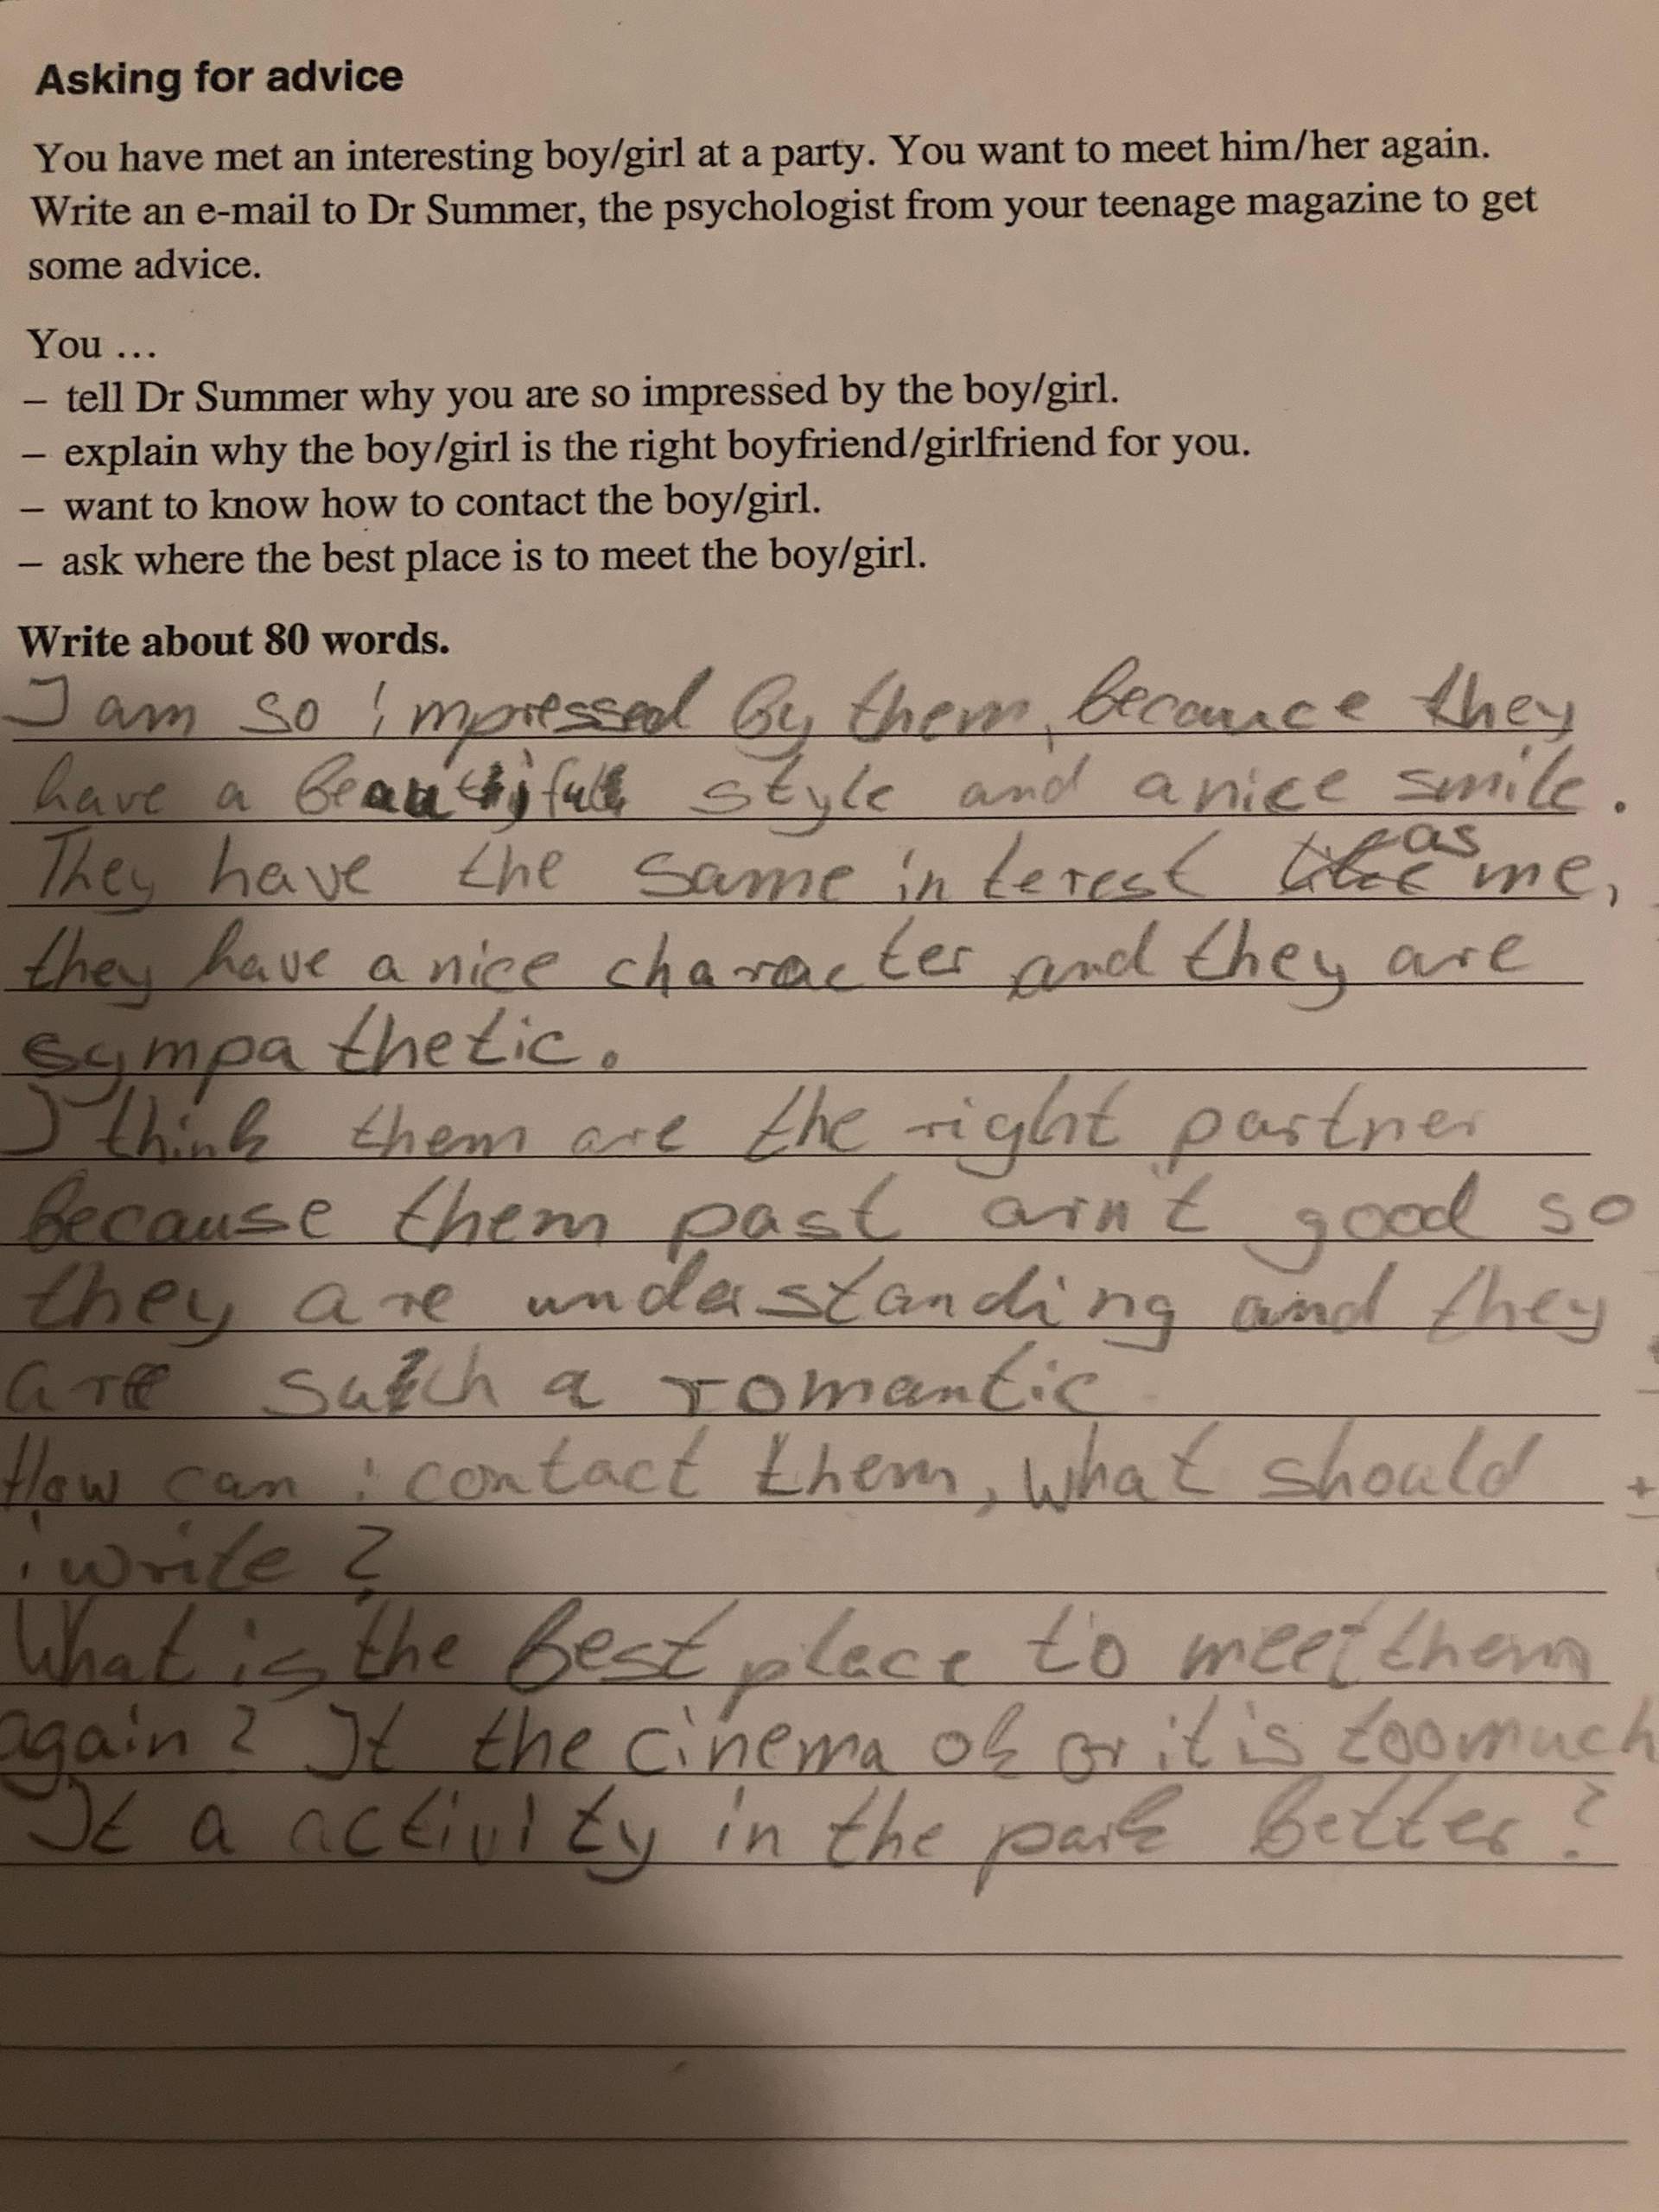 Asking for advice
You have met an interesting boy/girl at a party. You want to meet him/her again.
Write an e-mail to Dr Summer, the psychologist from your teenage magazine to get
some advice.
You ...
– tell Dr Summer why you are so impressed by the boy/girl.
– explain why the boy/girl is the right boyfriend/girlfriend for you.
– want to know how to contact the boy/girl.
– ask where the best place is to meet the boy/girl.
Write about 80 words.
I am so impressed by them, becaunce they
have a beautifull style and a nice smile.
They have the same interest like as me,
they have a nice character and they are
sympathetic.
I think them are the right partner
because them past ain't good so
they are understanding and they
are such a romantic
How can i contact them, what should
i write?
What is the best place to meet them
again? It the cinema ok or it is too much
It a activity in the park better?